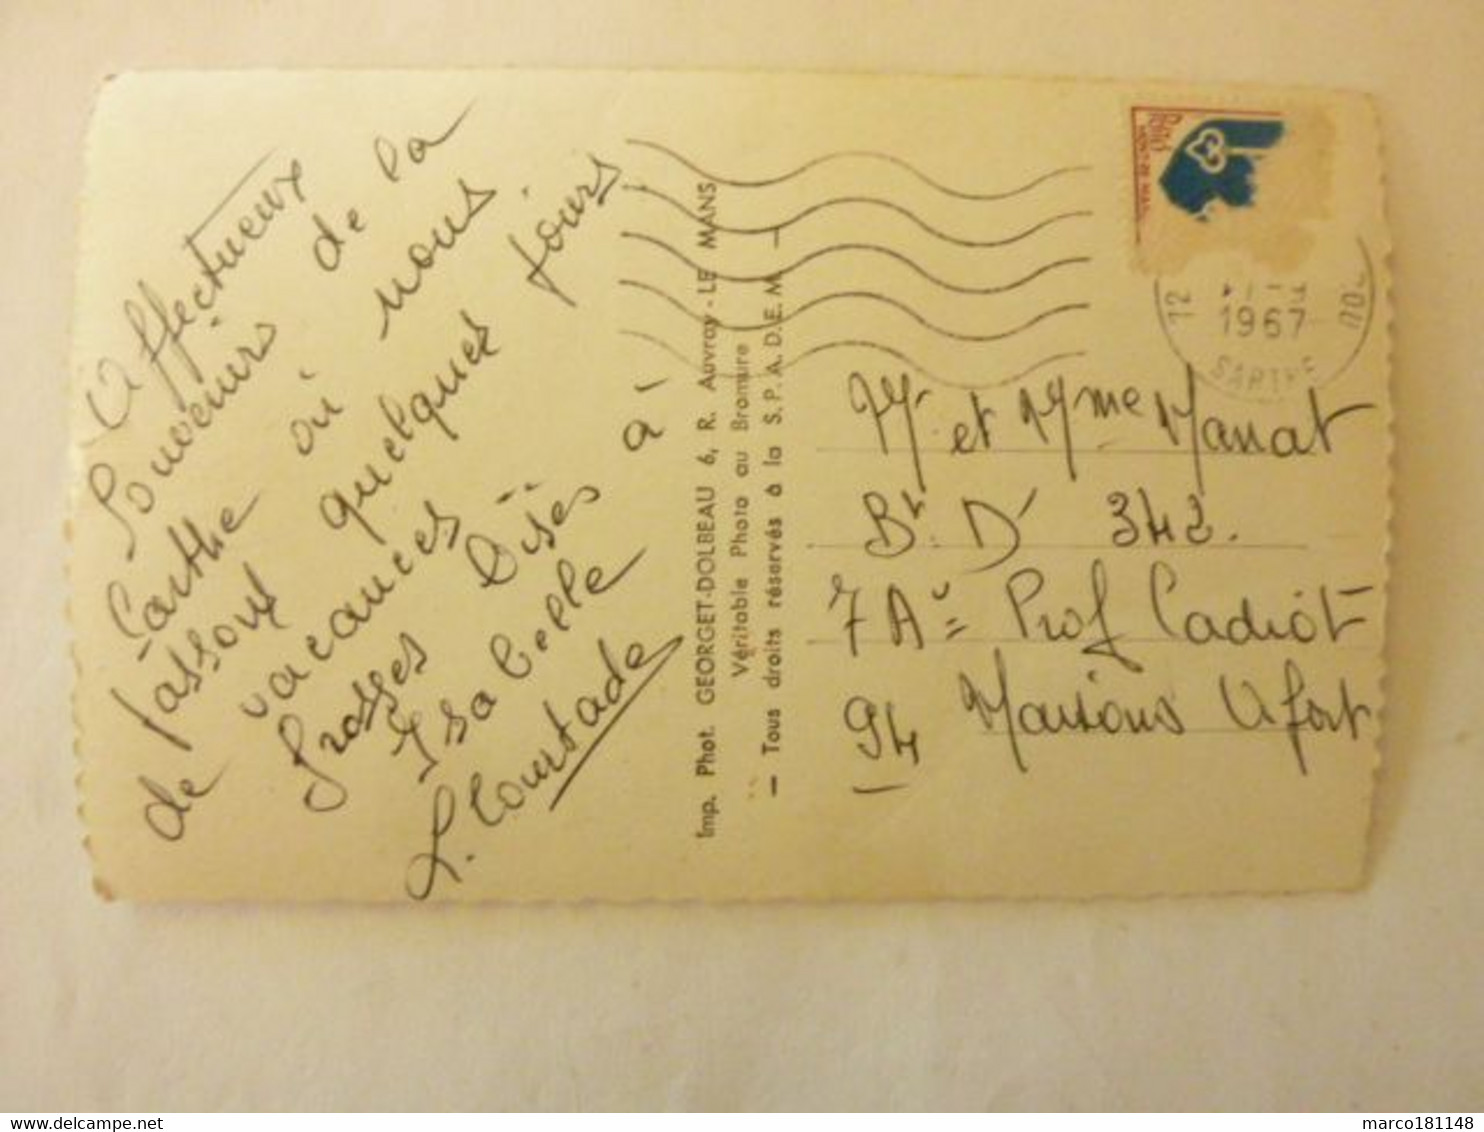 Affectueux
Souvenirs de la
Sarthe où nous
passont quelques jours
de vacances
Grosses Bises à
Isabelle
L. Courtade
Imp. Phot. GEORGET-DOLBEAU 6, R. Auvray - LE MANS
Véritable Photo au Bromure
— Tous droits réservés à la S. P. A. D. E. M. —
MONT-DE-MARS
12
1967
SARTHE
Mr et Mme Marrat
Bt D 342.
7 Ae Prof Cadiot
94 Maisons Alfort
marco181148